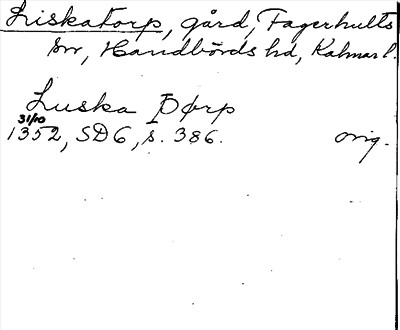 Liskatorp, gård, Fagerhults
sn, Handbörds hd, Kalmar l.
Luska Þørp
31/10
1352, SD6, s. 386. orig.